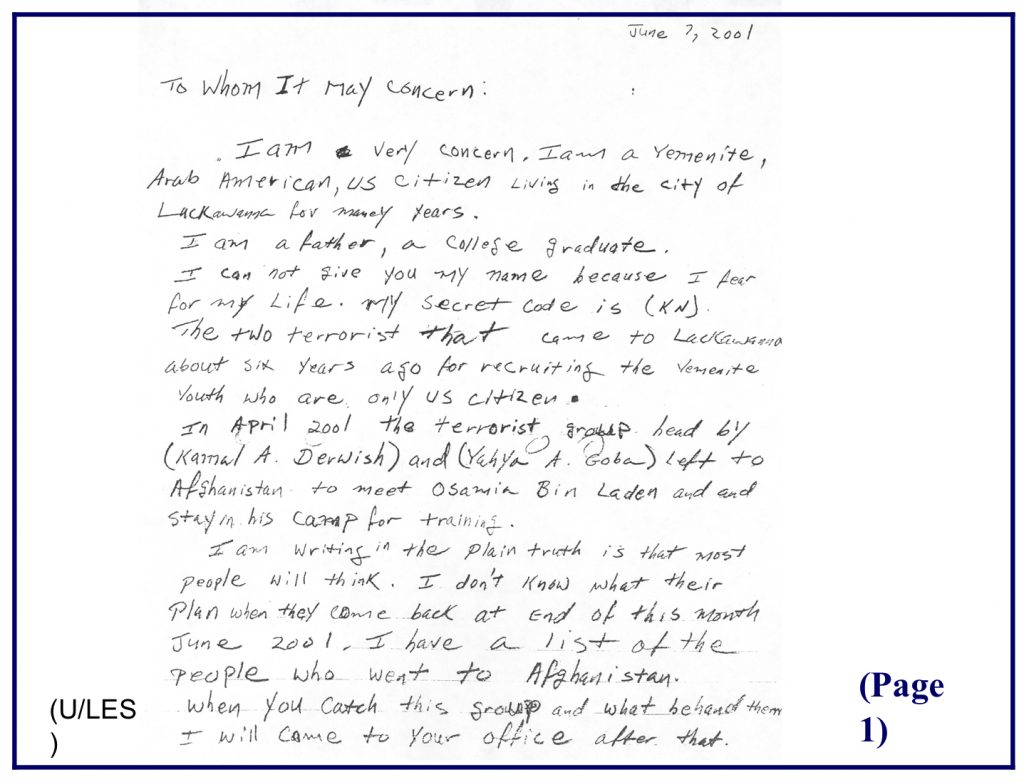 June 7, 2001
To Whom It May Concern:
I am very concern. I am a Yemenite,
Arab American, US citizen Living in the city of
Lackawanna for maney years.
I am a father, a college graduate.
I can not give you my name because I fear
for my Life. My secret code is (KN).
The two terrorist that came to Lackawanna
about six years ago for recruiting the Yemenite
Youth who are only US citizen.
In April 2001 the terrorist group head by
(Kamal A. Derwish) and (Yahya A. Goba) Left to
Afghanistan to meet Osamia Bin Laden and and
stay in his camp for training.
I am writing in the plain truth is that most
people will think. I don't know what their
Plan when they come back at End of this month
June 2001. I have a list of the
people who went to Afghanistan.
when you catch this group and what behand them
I will come to your office after that.
(U/LES
)
(Page
1)